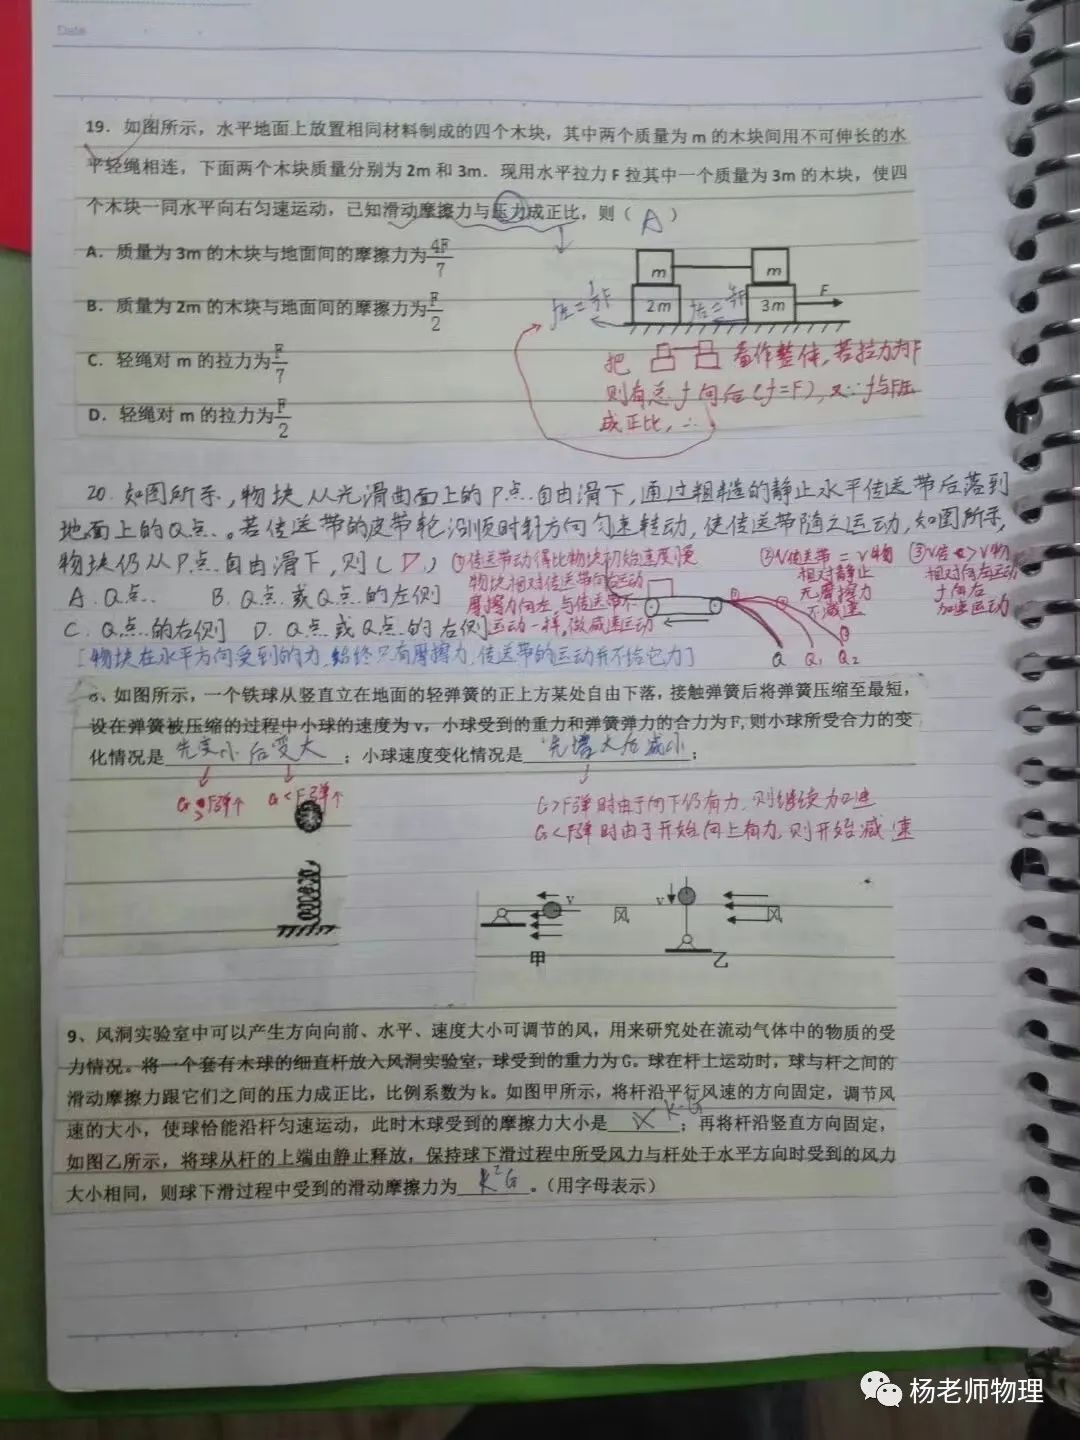 Date
19. 如图所示，水平地面上放置相同材料制成的四个木块，其中两个质量为 m 的木块间用不可伸长的水
平轻绳相连，下面两个木块质量分别为 2m 和 3m．现用水平拉力 F 拉其中一个质量为 3m 的木块，使四
个木块一同水平向右匀速运动，已知滑动摩擦力与压力成正比，则（ A ）
A．质量为 3m 的木块与地面间的摩擦力为4F/7
B．质量为 2m 的木块与地面间的摩擦力为F/2
C．轻绳对 m 的拉力为F/7
D．轻绳对 m 的拉力为F/2
m m
2m 3m F
把 看作整体，若拉力为F
则有总f向后(f=F)，又∵f与F压
成正比，∴
20. 如图所示，物块从光滑曲面上的P点自由滑下，通过粗糙的静止水平传送带后落到
地面上的Q点。若传送带的皮带轮沿顺时针方向匀速转动，使传送带随之运动，如图所示，
物块仍从P点自由滑下，则( D )
A. Q点 B. Q点或Q点的左侧
C. Q点的右侧 D. Q点或Q点的右侧
①传送带动得比物块初始速度慢
物块相对传送带向右运动
摩擦力向左，与传送带不
运动一样，做减速运动
②V传送带 = V物
相对静止
无摩擦力
不减速
③V传 > V物
相对向左运动
f向右
加速运动
Q Q1 Q2
[物块在水平方向受到的力，始终只有摩擦力，传送带的运动并不给它力]
8、如图所示，一个铁球从竖直立在地面的轻弹簧的正上方某处自由下落，接触弹簧后将弹簧压缩至最短，
设在弹簧被压缩的过程中小球的速度为 v，小球受到的重力和弹簧弹力的合力为 F，则小球所受合力的变
化情况是 先变小后变大 ；小球速度变化情况是 先增大后减小 ；
G>F弹个 G<F弹个
G>F弹时由于向下仍有力，则继续加速
G<F弹时由于开始向上有力，则开始减速
v 风 v 风
甲 乙
9、风洞实验室中可以产生方向向前、水平、速度大小可调节的风，用来研究处在流动气体中的物质的受
力情况。将一个套有木球的细直杆放入风洞实验室，球受到的重力为 G。球在杆上运动时，球与杆之间的
滑动摩擦力跟它们之间的压力成正比，比例系数为 k。如图甲所示，将杆沿平行风速的方向固定，调节风
速的大小，使球恰能沿杆匀速运动，此时木球受到的摩擦力大小是 K·G ；再将杆沿竖直方向固定，
如图乙所示，将球从杆的上端由静止释放，保持球下滑过程中所受风力与杆处于水平方向时受到的风力
大小相同，则球下滑过程中受到的滑动摩擦力为 K²G 。（用字母表示）
杨老师物理